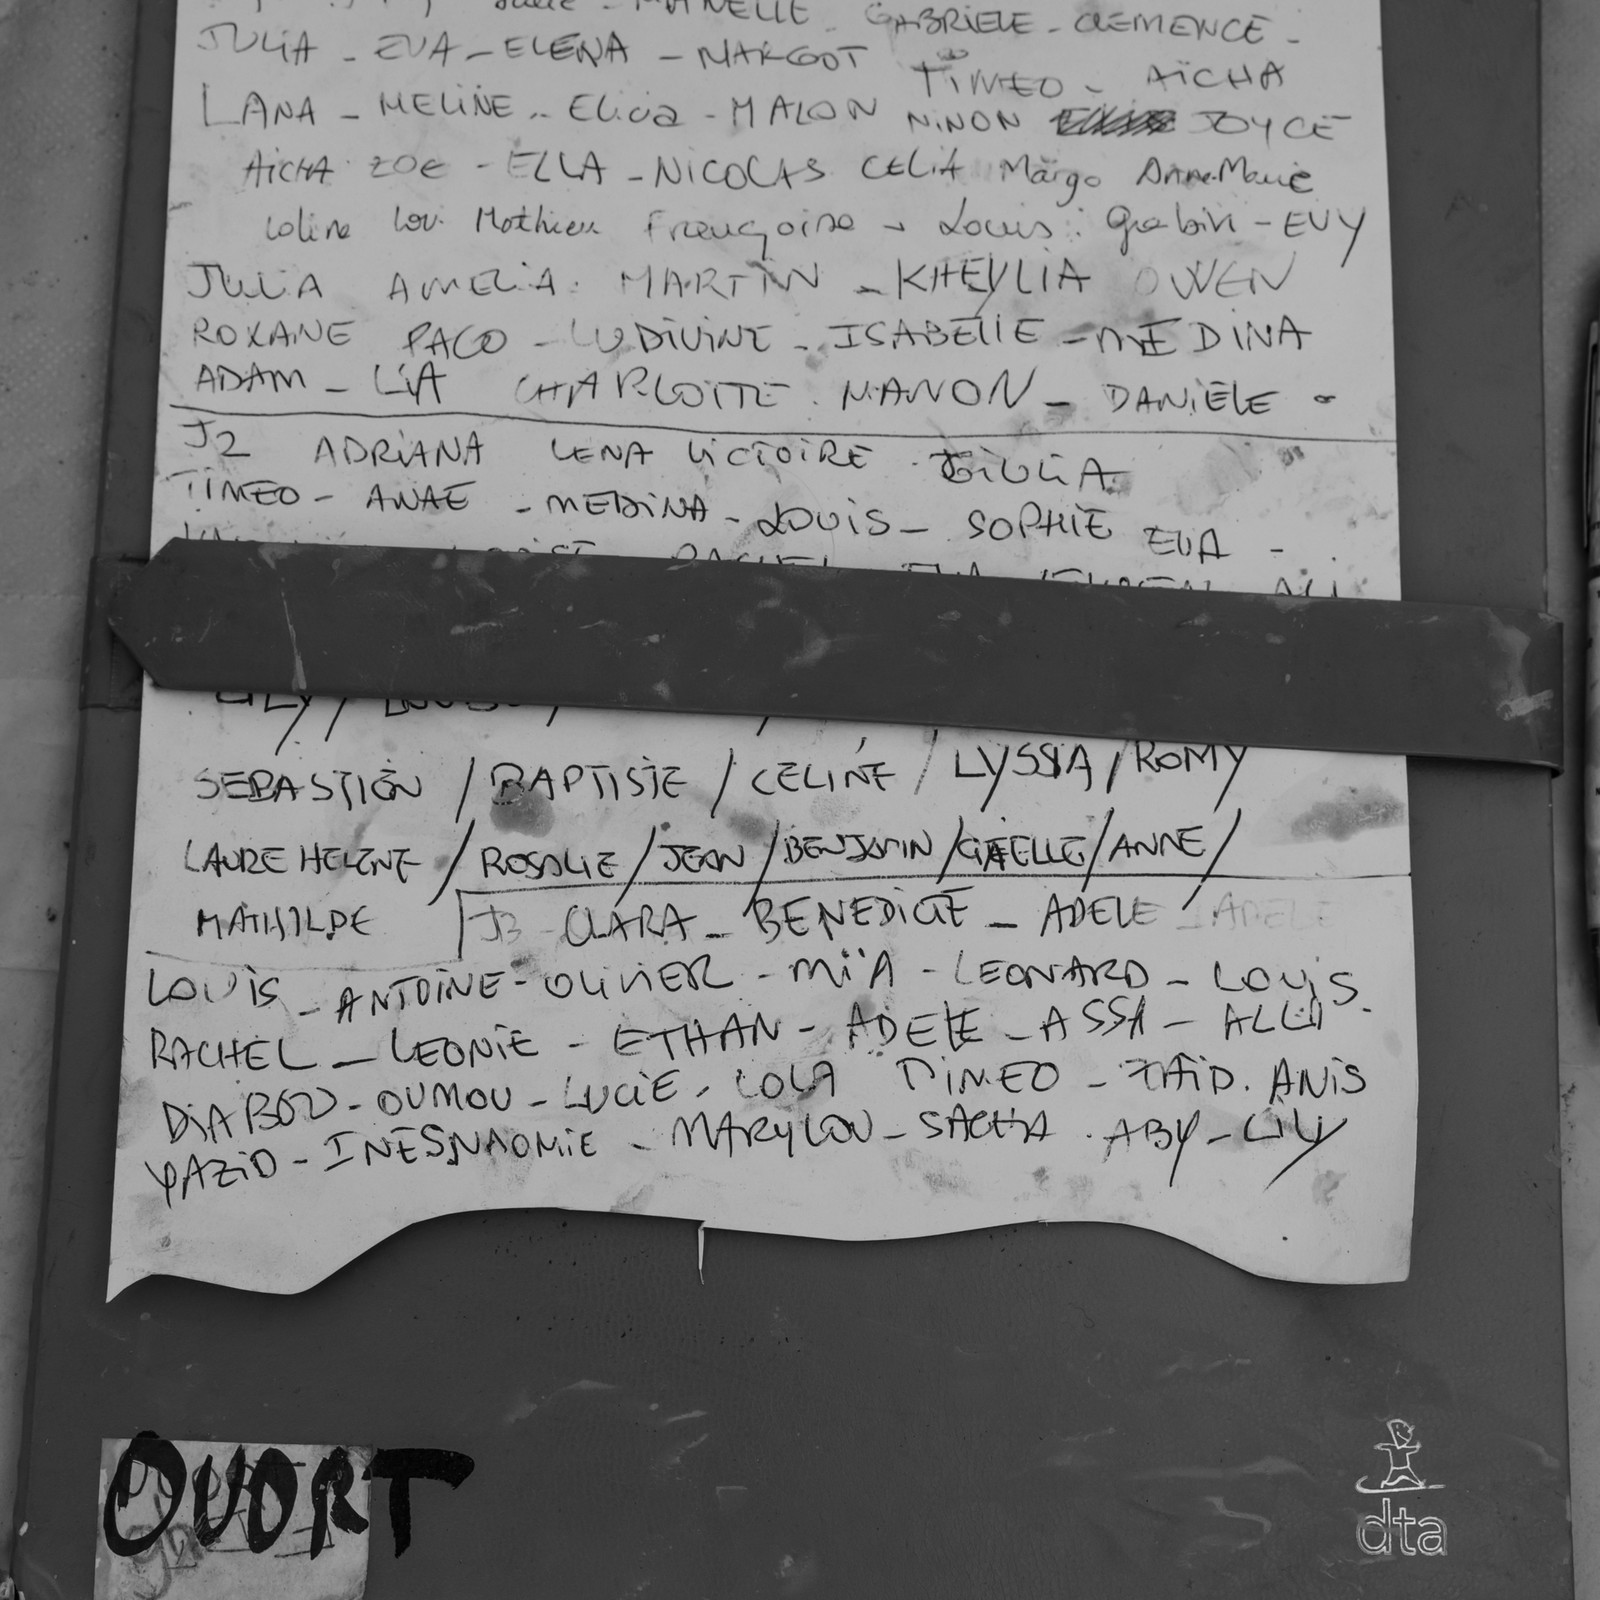 GABRIELE - CLEMENCE -
JULIA - EVA - ELENA - MARGOT TIMEO - AÏCHA
LANA - MELINE - Elicia - MALON NINON JOYCE
AICHA ZOE - ELLA - NICOLAS CELIA Margo Anne-Marie
Coline Lou Mathieu Françoise - Louis Gabin - EVY
JULIA AMELIA MARTIN - KHEYLIA OWEN
ROXANE PACO - LUDIVINE - ISABELLE - MEDINA
ADAM - LIA CHARLOTTE MANON - DANIELE -
J2 ADRIANA LENA VICTOIRE GIULIA
TIMEO - ANAE - MEDINA - LOUIS - SOPHIE EVA -
RACHEL
LILY /
SEBASTIEN / BAPTISTE / CELINE / LYSSIA / ROMY
LAURE HELENE / ROSALIE / JEAN / BENJAMIN / GAELLE / ANNE /
MATHILDE J3 - CLARA - BENEDICTE - ADELE
LOUIS - ANTOINE - OLIVIER - MIA - LEONARD - LOUIS
RACHEL - LEONIE - ETHAN - ADELE - ASSA -
OUMOU - LUCIE - LOLA TIMEO - ZAÏD. ANIS
YAZID - INES NAOMIE - MARYLOU - SACHA . ABY - LILY
OUORT
dta